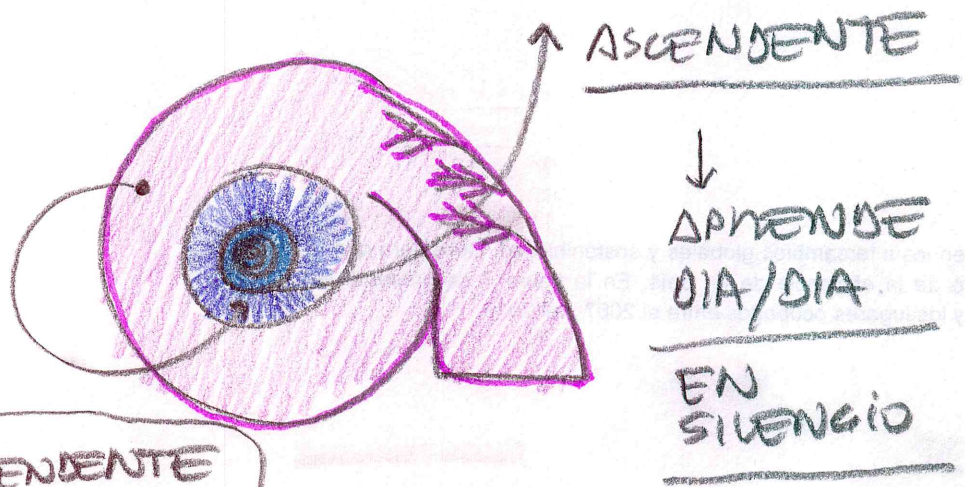 ASCENDENTE
APRENDE
DIA/DIA
EN
SILENCIO
ENDENTE